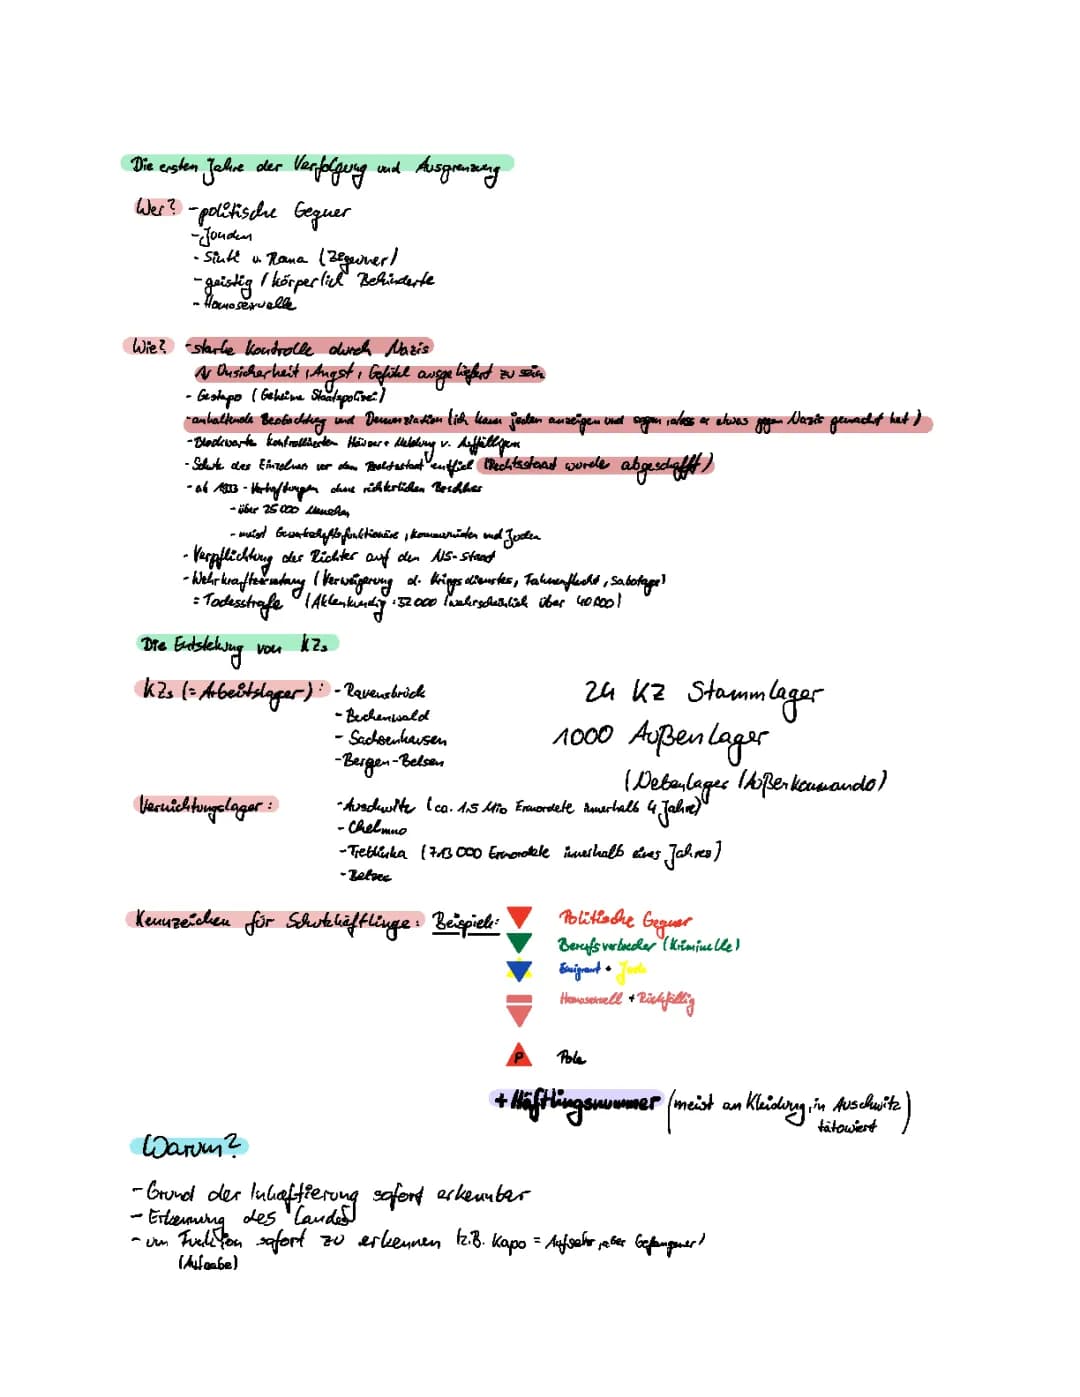 Die ersten Jahre der Verfolgung und Ausgrenzung
Wer? - politische Gegner
- Jouden
- Sinti u. Roma (Zegeuner)
- geistig / körperlich Behinderte
- Homosexuelle
Wie? - starke Kontrolle durch Nazis
Unsicherheit, Angst, Gefühl ausgeliefert zu sein
- Gestapo (Geheime Staatspolizei)
- anhaltende Beobachtung und Denunziation (ich kann jeden anzeigen und sagen, dass er etwas gegen Nazis gemacht hat)
- Blockwarte kontrollierten Häuser + Meldung v. Auffälligem
- Schutz des Einzelnen vor dem Rechtsstaat entfiel (Rechtsstaat wurde abgeschafft)
- ab 1933 - Verhaftungen ohne richterlichen Beschluss
- über 25 000 Menschen
- meist Gewerkschaftsfunktionäre, Kommunisten und Juden
- Verpflichtung der Richter auf den NS-Staat
- Wehrkraftzersetzung (Verweigerung d. Kriegsdienstes, Fahnenflucht, Sabotage)
= Todesstrafe (Aktenkundig: 32 000 (wahrscheinlich über 40 000)
Die Entstehung von KZs
KZs (= Arbeitslager): - Ravensbrück
- Buchenwald
- Sachsenhausen
- Bergen-Belsen
24 KZ Stammlager
1000 Außenlager
(Nebenlager / Außenkomando)
Vernichtungslager: - Auschwitz (ca. 1.5 Mio Ermordete innerhalb 4 Jahre)
- Chelmno
- Treblinka (713 000 Ermordete innerhalb eines Jahres)
- Belzec
Kennzeichen für Schutzhäftlinge: Beispiele: Politische Gegner
Berufsverbrecher (Kriminelle)
Emigrant + Jude
Homosexuell + Rückfällig
P Pole
+ Häftlingsnummer (meist an Kleidung, in Auschwitz tätowiert)
Warum?
- Grund der Inhaftierung sofort erkennbar
- Erkennung des Landes
- um Funktion sofort zu erkennen (z.B. Kapo = Aufseher, aber Gefangener)
(Aufgabe)